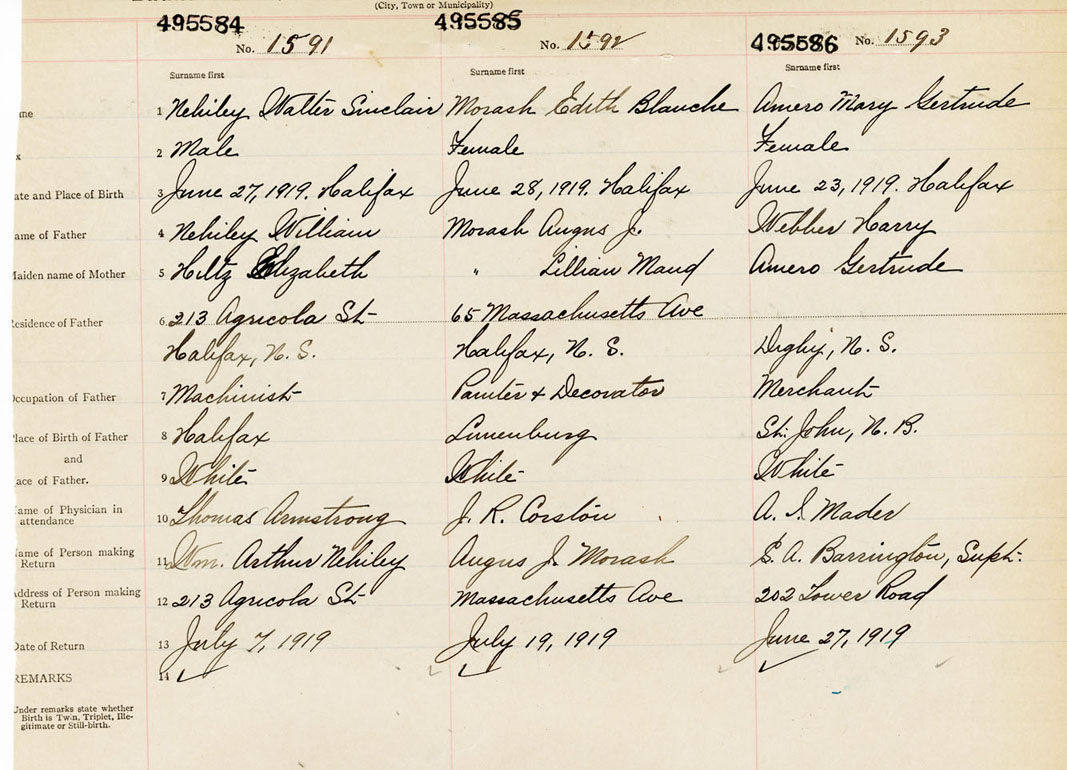 (City, Town or Municipality)
495584 No. 1591
495585 No. 1592
495586 No. 1593
Surname first Surname first Surname first
me 1 Nehiley Walter Sinclair Morash Edith Blanche Amero Mary Gertrude
x 2 Male Female Female
ate and Place of Birth 3 June 27, 1919. Halifax June 28, 1919. Halifax June 23, 1919. Halifax
ame of Father 4 Nehiley William Morash Angus J. Webber Harry
Maiden name of Mother 5 Hiltz Elizabeth " Lillian Maud Amero Gertrude
esidence of Father 6 213 Agricola St 65 Massachusetts Ave
Halifax, N. S. Halifax, N. S. Digby, N. S.
Occupation of Father 7 Machinist Painter & Decorator Merchant
lace of Birth of Father 8 Halifax Lunenburg St. John, N. B.
and
ace of Father. 9 White White White
ame of Physician in
attendance 10 Thomas Armstrong J. R. Corston A. I. Mader
Name of Person making
Return 11 Wm. Arthur Nehiley Angus J. Morash S. A. Barrington, Supt.
Address of Person making
Return 12 213 Agricola St Massachusetts Ave 202 Tower Road
Date of Return 13 July 7, 1919 July 19, 1919 June 27, 1919
REMARKS 14
Under remarks state whether
Birth is Twin, Triplet, Ille-
gitimate or Still-birth.